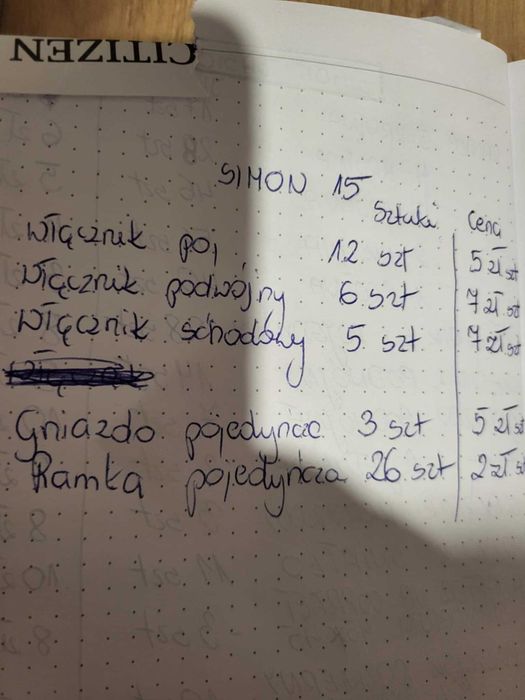 CITIZEN
SIMON 15
Sztuki Cena
Włącznik poj, 12 szt 5 zł szt
Włącznik podwójny 6 szt 7 zł szt
Włącznik schodowy 5 szt 7 zł szt
Gniazdo pojedyńcze 3 szt 5 zł szt
Ramka pojedyńcza 26 szt 2 zł szt